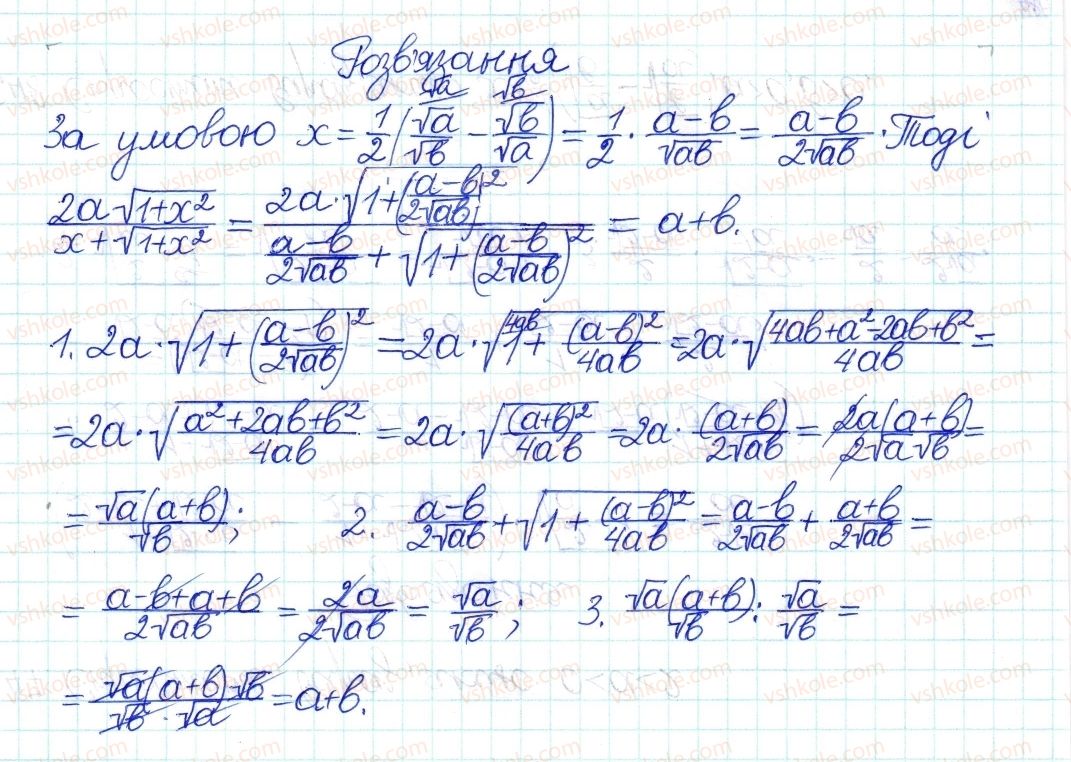 Розв'язання
За умовою x = 1/2 (√a/√b − √b/√a) = 1/2 · (a−b)/√ab = (a−b)/(2√ab). Тоді
2a·√(1+x²) / (x+√(1+x²)) = 2a·√(1+((a−b)/(2√ab))²) / ((a−b)/(2√ab) + √(1+((a−b)/(2√ab))²)) = a+b.
1. 2a·√(1+((a−b)/(2√ab))²) = 2a·√(1+(a−b)²/(4ab)) = 2a·√((4ab+a²−2ab+b²)/(4ab)) =
= 2a·√((a²+2ab+b²)/(4ab)) = 2a·√((a+b)²/(4ab)) = 2a·(a+b)/(2√ab) = 2a(a+b)/(2√a√b) =
= √a(a+b)/√b; 2. (a−b)/(2√ab) + √(1+(a−b)²/(4ab)) = (a−b)/(2√ab) + (a+b)/(2√ab) =
= (a−b+a+b)/(2√ab) = 2a/(2√ab) = √a/√b; 3. √a(a+b)/√b : √a/√b =
= √a(a+b)·√b/(√b·√a) = a+b.
vshkole.com